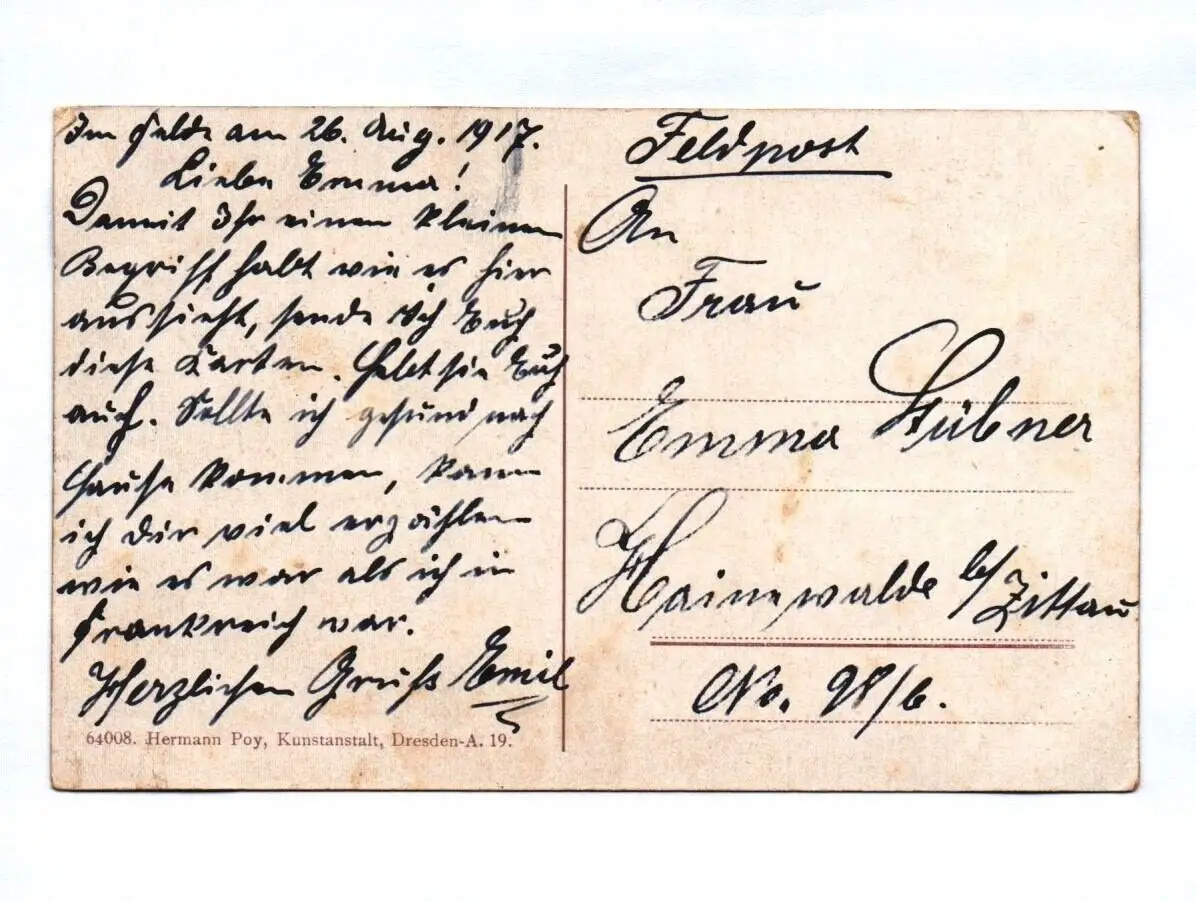 Im Felde am 26. Aug. 1917.
Liebe Emma!
Damit Ihr einen kleinen
Begriff habt wie es hier
aussieht, sende ich Euch
diese Karten. Hebt sie Euch
auf. Sollte ich gesund nach
Hause kommen, kann
ich dir viel erzählen
wie es war als ich in
Frankreich war.
Herzlichen Gruß Emil
64008. Hermann Poy, Kunstanstalt, Dresden-A. 19.
Feldpost
An
Frau
Emma Hübner
Hainewalde b/ Zittau
No. 98/b.